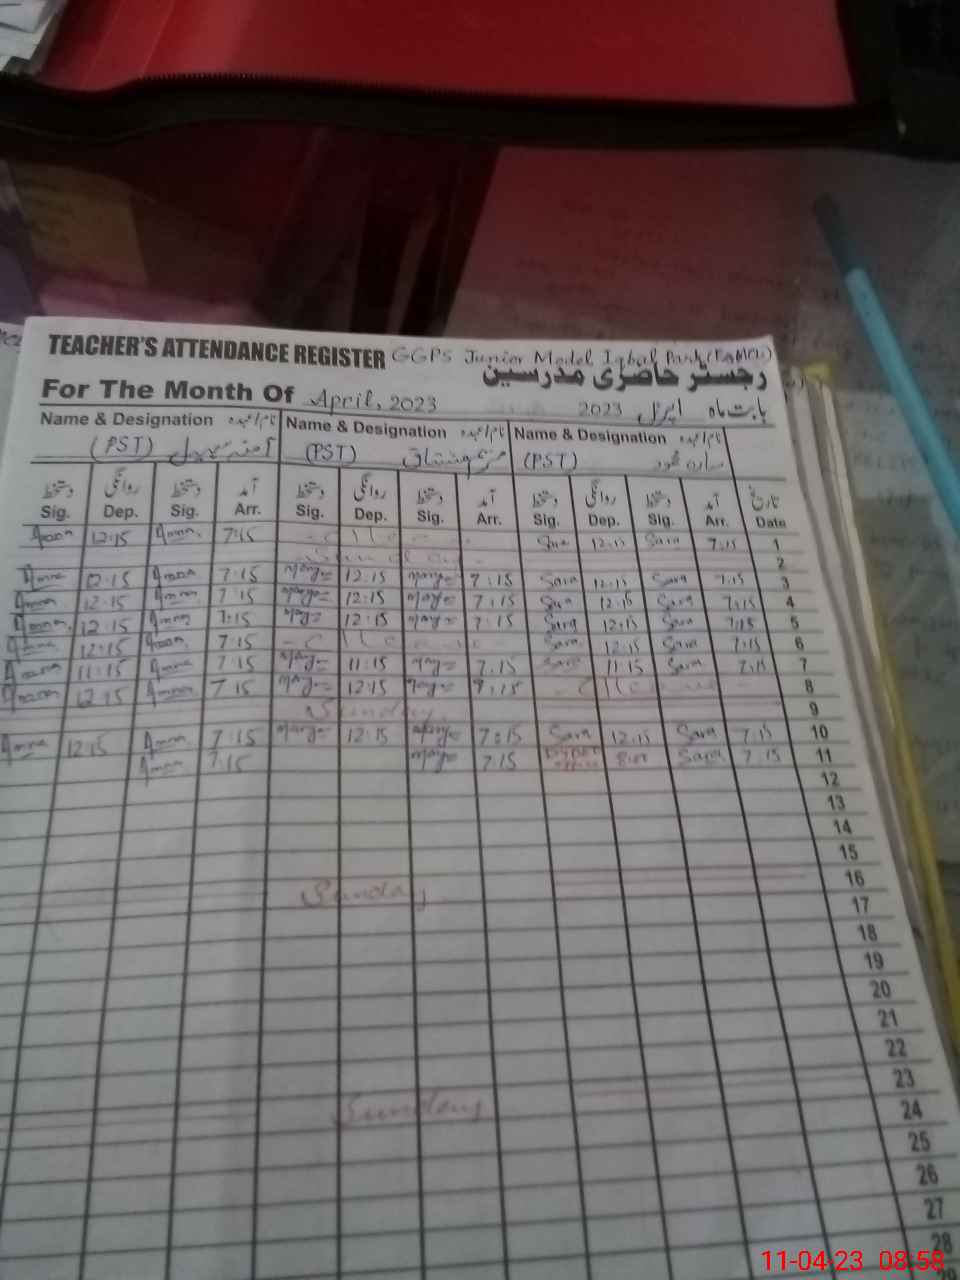 TEACHER'S ATTENDANCE REGISTER GGPS Junior Model Iqbal Park
رجسٹر حاضری مدرسین
For The Month Of April, 2023 2023 اپریل بابت ماہ
Name & Designation نام/عہدہ Name & Designation نام/عہدہ Name & Designation نام/عہدہ
(PST) (PST) (PST)
دستخط روانگی دستخط آمد دستخط روانگی دستخط آمد دستخط روانگی دستخط آمد تاریخ
Sig. Dep. Sig. Arr. Sig. Dep. Sig. Arr. Sig. Dep. Sig. Arr. Date
12:15 Amna 7:15 Sara 12:15 Sara 7:15 1
Sunday 2
Amna 12:15 Amna 7:15 12:15 7:15 Sara 12:15 Sara 7:15 3
Amna 12:15 Amna 7:15 12:15 7:15 12:15 Sara 7:15 4
Amna 12:15 Amna 7:15 12:15 7:15 Sara 12:15 Sara 7:15 5
Amna 12:15 7:15 Sara 12:15 Sara 7:15 6
11:15 Amna 7:15 11:15 7:15 Sara 11:15 Sara 7:15 7
12:15 Amna 7:15 12:15 7:15 8
Sunday 9
Amna 12:15 Amna 7:15 12:15 7:15 Sara 12:15 Sara 7:15 10
Amna 7:15 7:15 office 8:00 Sara 7:15 11
12
13
14
15
Sunday 16
17
18
19
20
21
22
Sunday 23
24
25
26
27
28
11-04-23 08:58